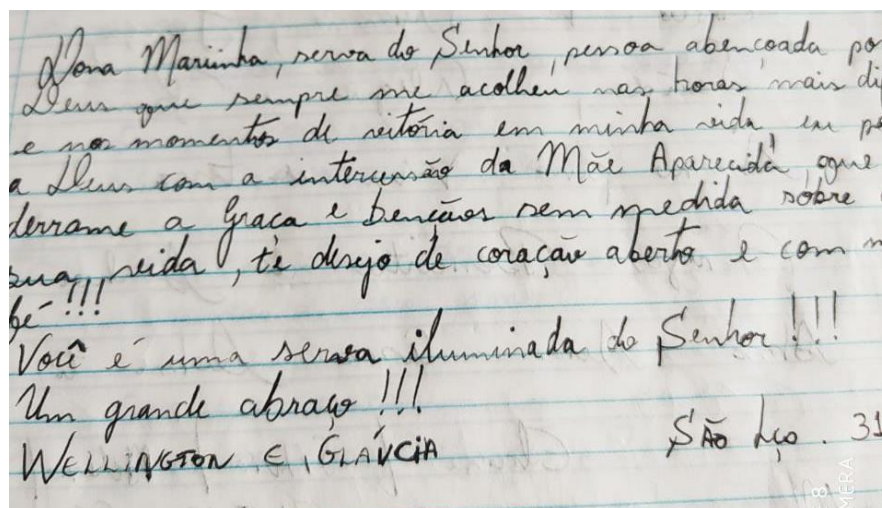 Dona Mariinha, serva do Senhor, pessoa abençoada po
Deus que sempre me acolheu nas horas mais di
e nos momentos de vitória em minha vida, eu pe
a Deus com a intercensão da Mãe Aparecida, que
derrame a Graça e bençãos sem medida sobre
sua vida, te desejo de coração aberto e com m
fé!!!
Você é uma serva iluminada do Senhor!!!
Um grande abraço!!!
WELLINGTON E GLÁUCIA
SÃO Lço. 31
8
MERA